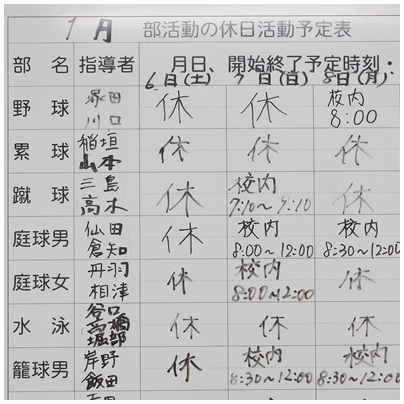 1月 部活動の休日活動予定表
部名 指導者 月日、開始終了予定時刻・
6日(土) 7日(日) 8日(月)
野球 塚田 川口 休 休 校内 8:00
累球 稲垣 山本 休 休 休
蹴球 三島 高木 休 校内 7:10~9:10 休
庭球男 仙田 倉知 休 校内 8:00~12:00 校内 8:30~12:00
庭球女 丹羽 相津 休 校内 8:00~12:00 休
水泳 谷口 高橋 堀部 休 休 休
籠球男 岸野 飯田 休 校内 8:30~12:00 校内 8:30~12:00